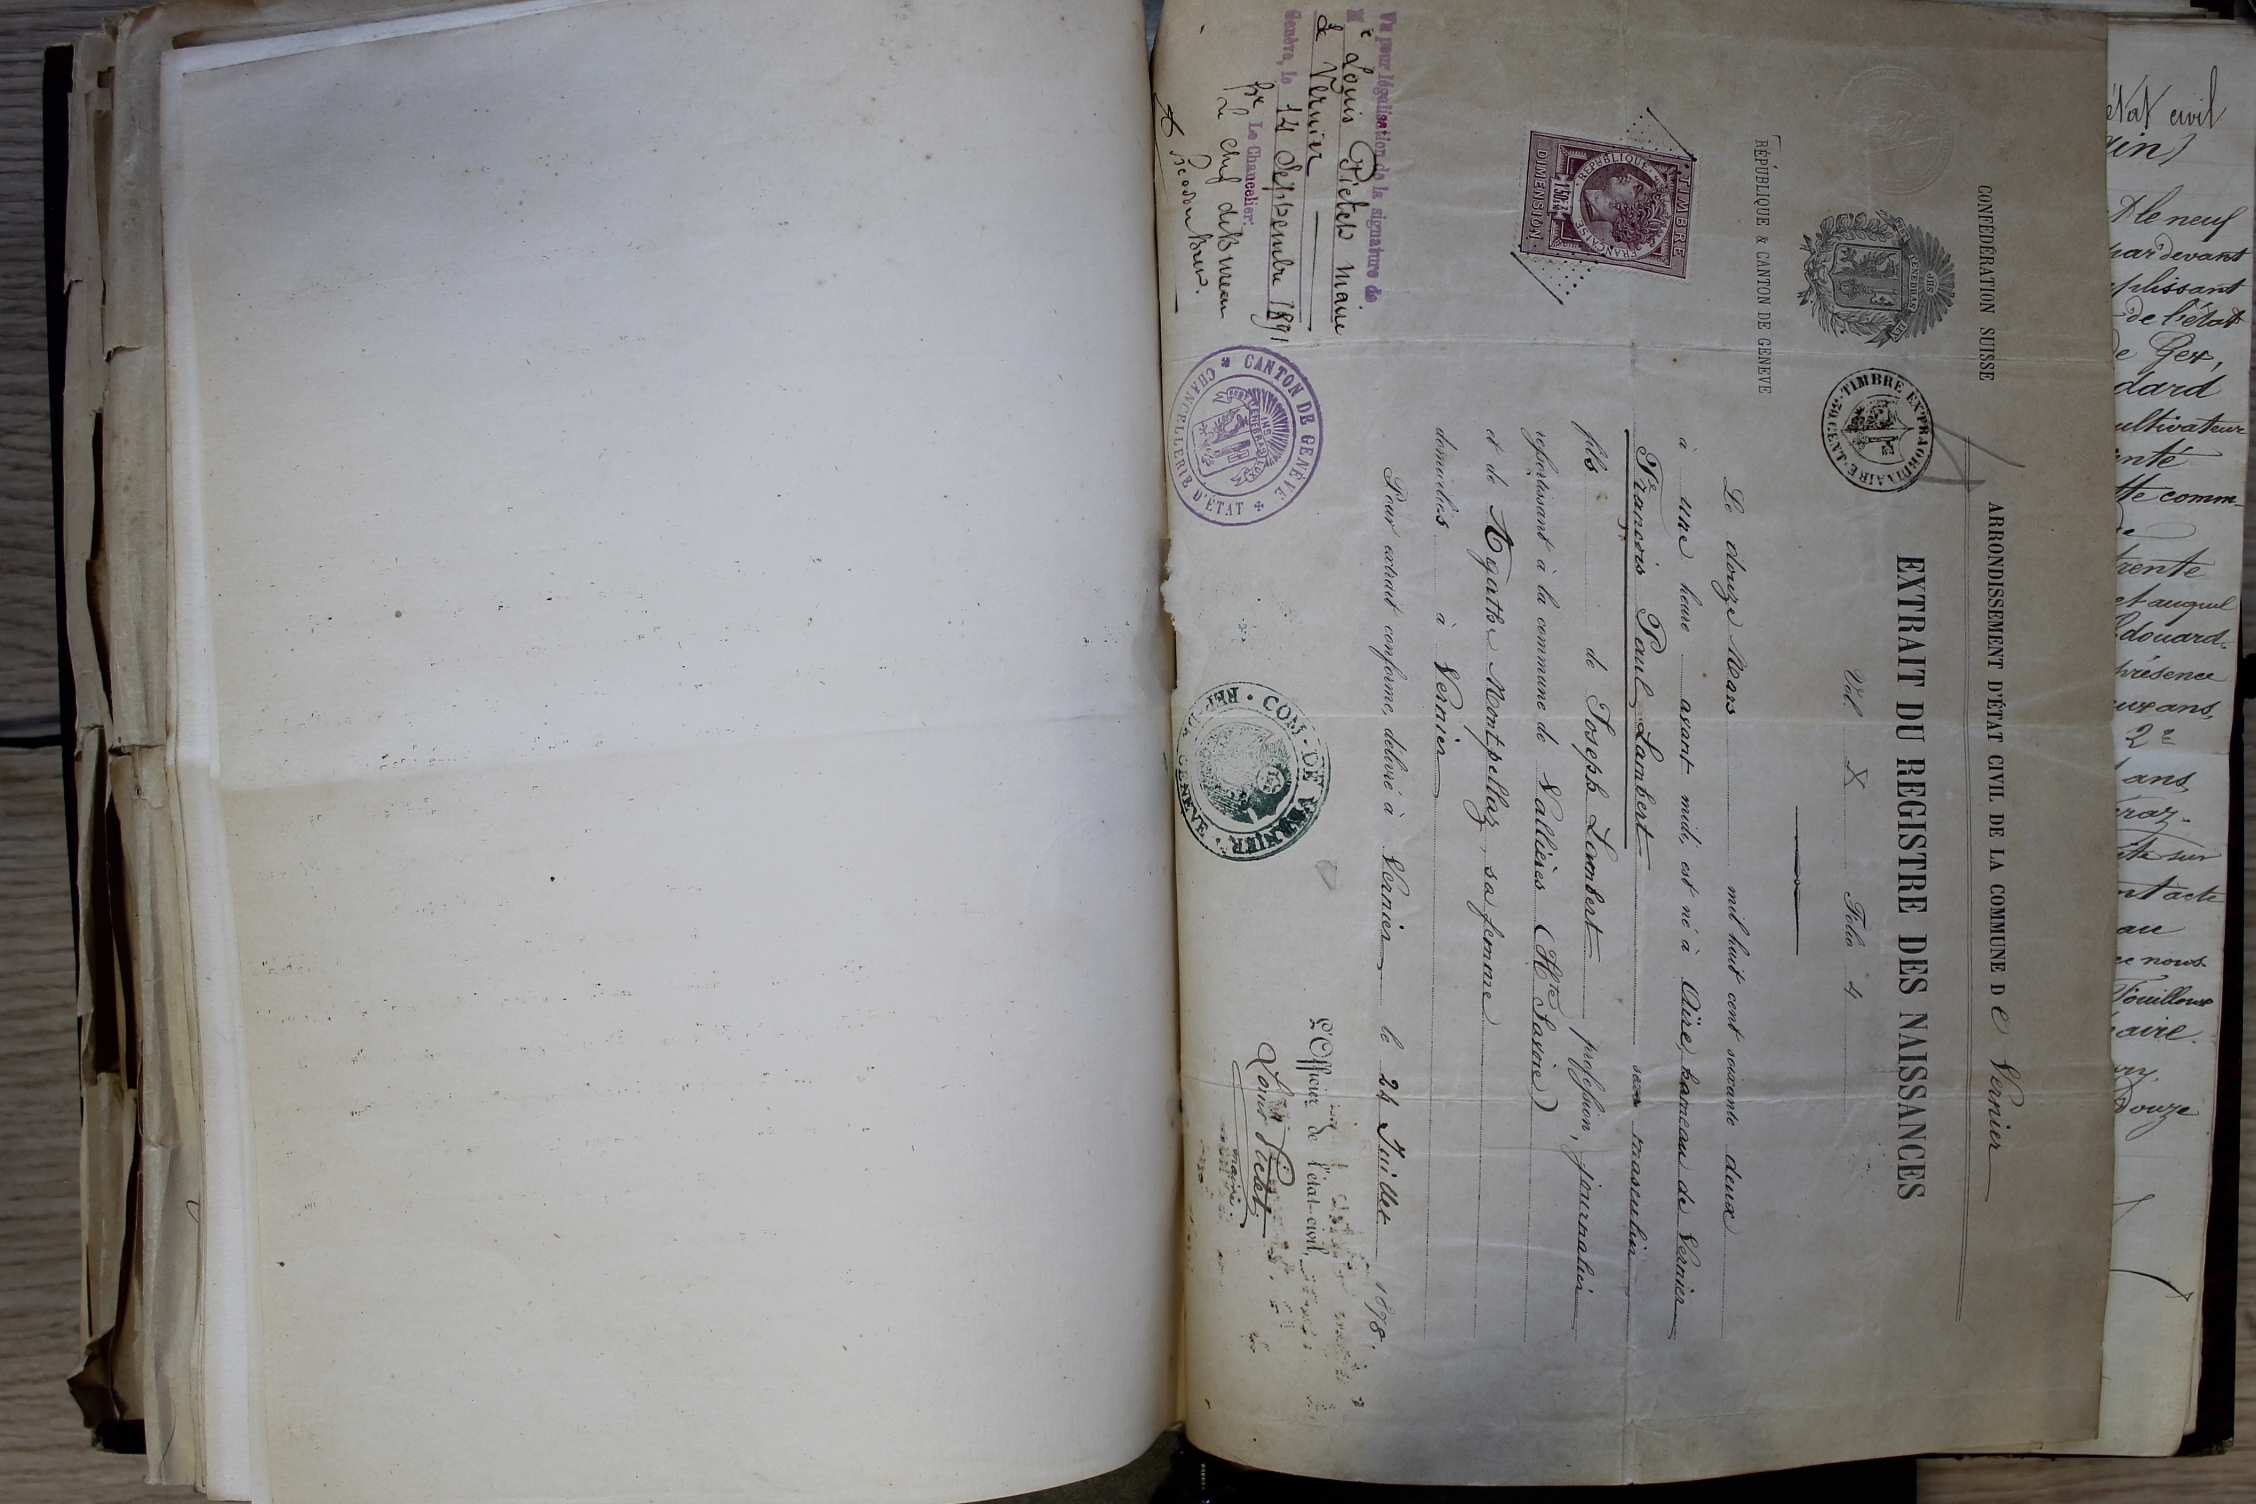 CONFÉDÉRATION SUISSE
POST TENEBRAS LUX
RÉPUBLIQUE & CANTON DE GENÈVE
ARRONDISSEMENT D'ÉTAT CIVIL DE LA COMMUNE De Vernier
EXTRAIT DU REGISTRE DES NAISSANCES
Vol. X Folio 4
TIMBRE EXTRAORDINAIRE
Le douze Mars mil huit cent soixante deux
à une heure avant midi, est né à Aïre, hameau de Vernier
François Paul Lambert sexe masculin
fils de Joseph Lambert profession, journalier
ressortissant à la commune de Vallières (Hte Savoie)
et de Agathe Montpellaz, sa femme
domiciliés à Vernier
Pour extrait conforme, délivré à Vernier le 24 Juillet 1898.
L'Officier de l'état-civil,
Louis Pictet
maire
TIMBRE
RÉPUBLIQUE FRANÇAISE
DIMENSION
Vu pour légalisation de la signature de
M r Louis Pictet maire
de Vernier
Genève, le 14 Septembre 1891
Le Chancelier:
Le chef de Bureau
CANTON DE GENÈVE
CHANCELLERIE D'ÉTAT
COM. DE VERNIER
GENÈVE
état civil
le neuf
par devant
plissant
de l'état
de Gex,
dard
cultivateur
comm
trente
et auquel
Edouard
présence
ans,
2e
ans,
sur
acte
au
nous
Fouilloux
maire.
Douze